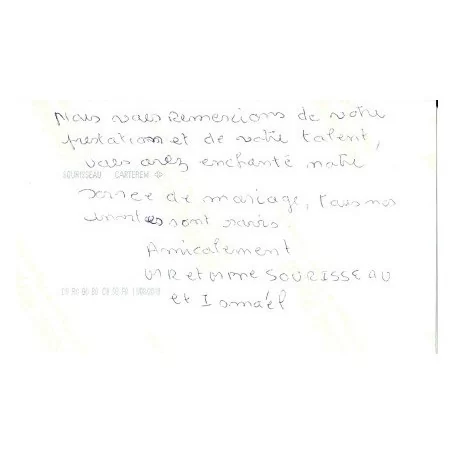 Nous vous Remercions de votre
prestation et de votre talent,
vous avez enchanté notre
SOURISSEAU CARTEREW
soiree de mariage, tous nos
invites sont ravis
Amicalement
MR et Mme SOURISSEAU
et Ismaël